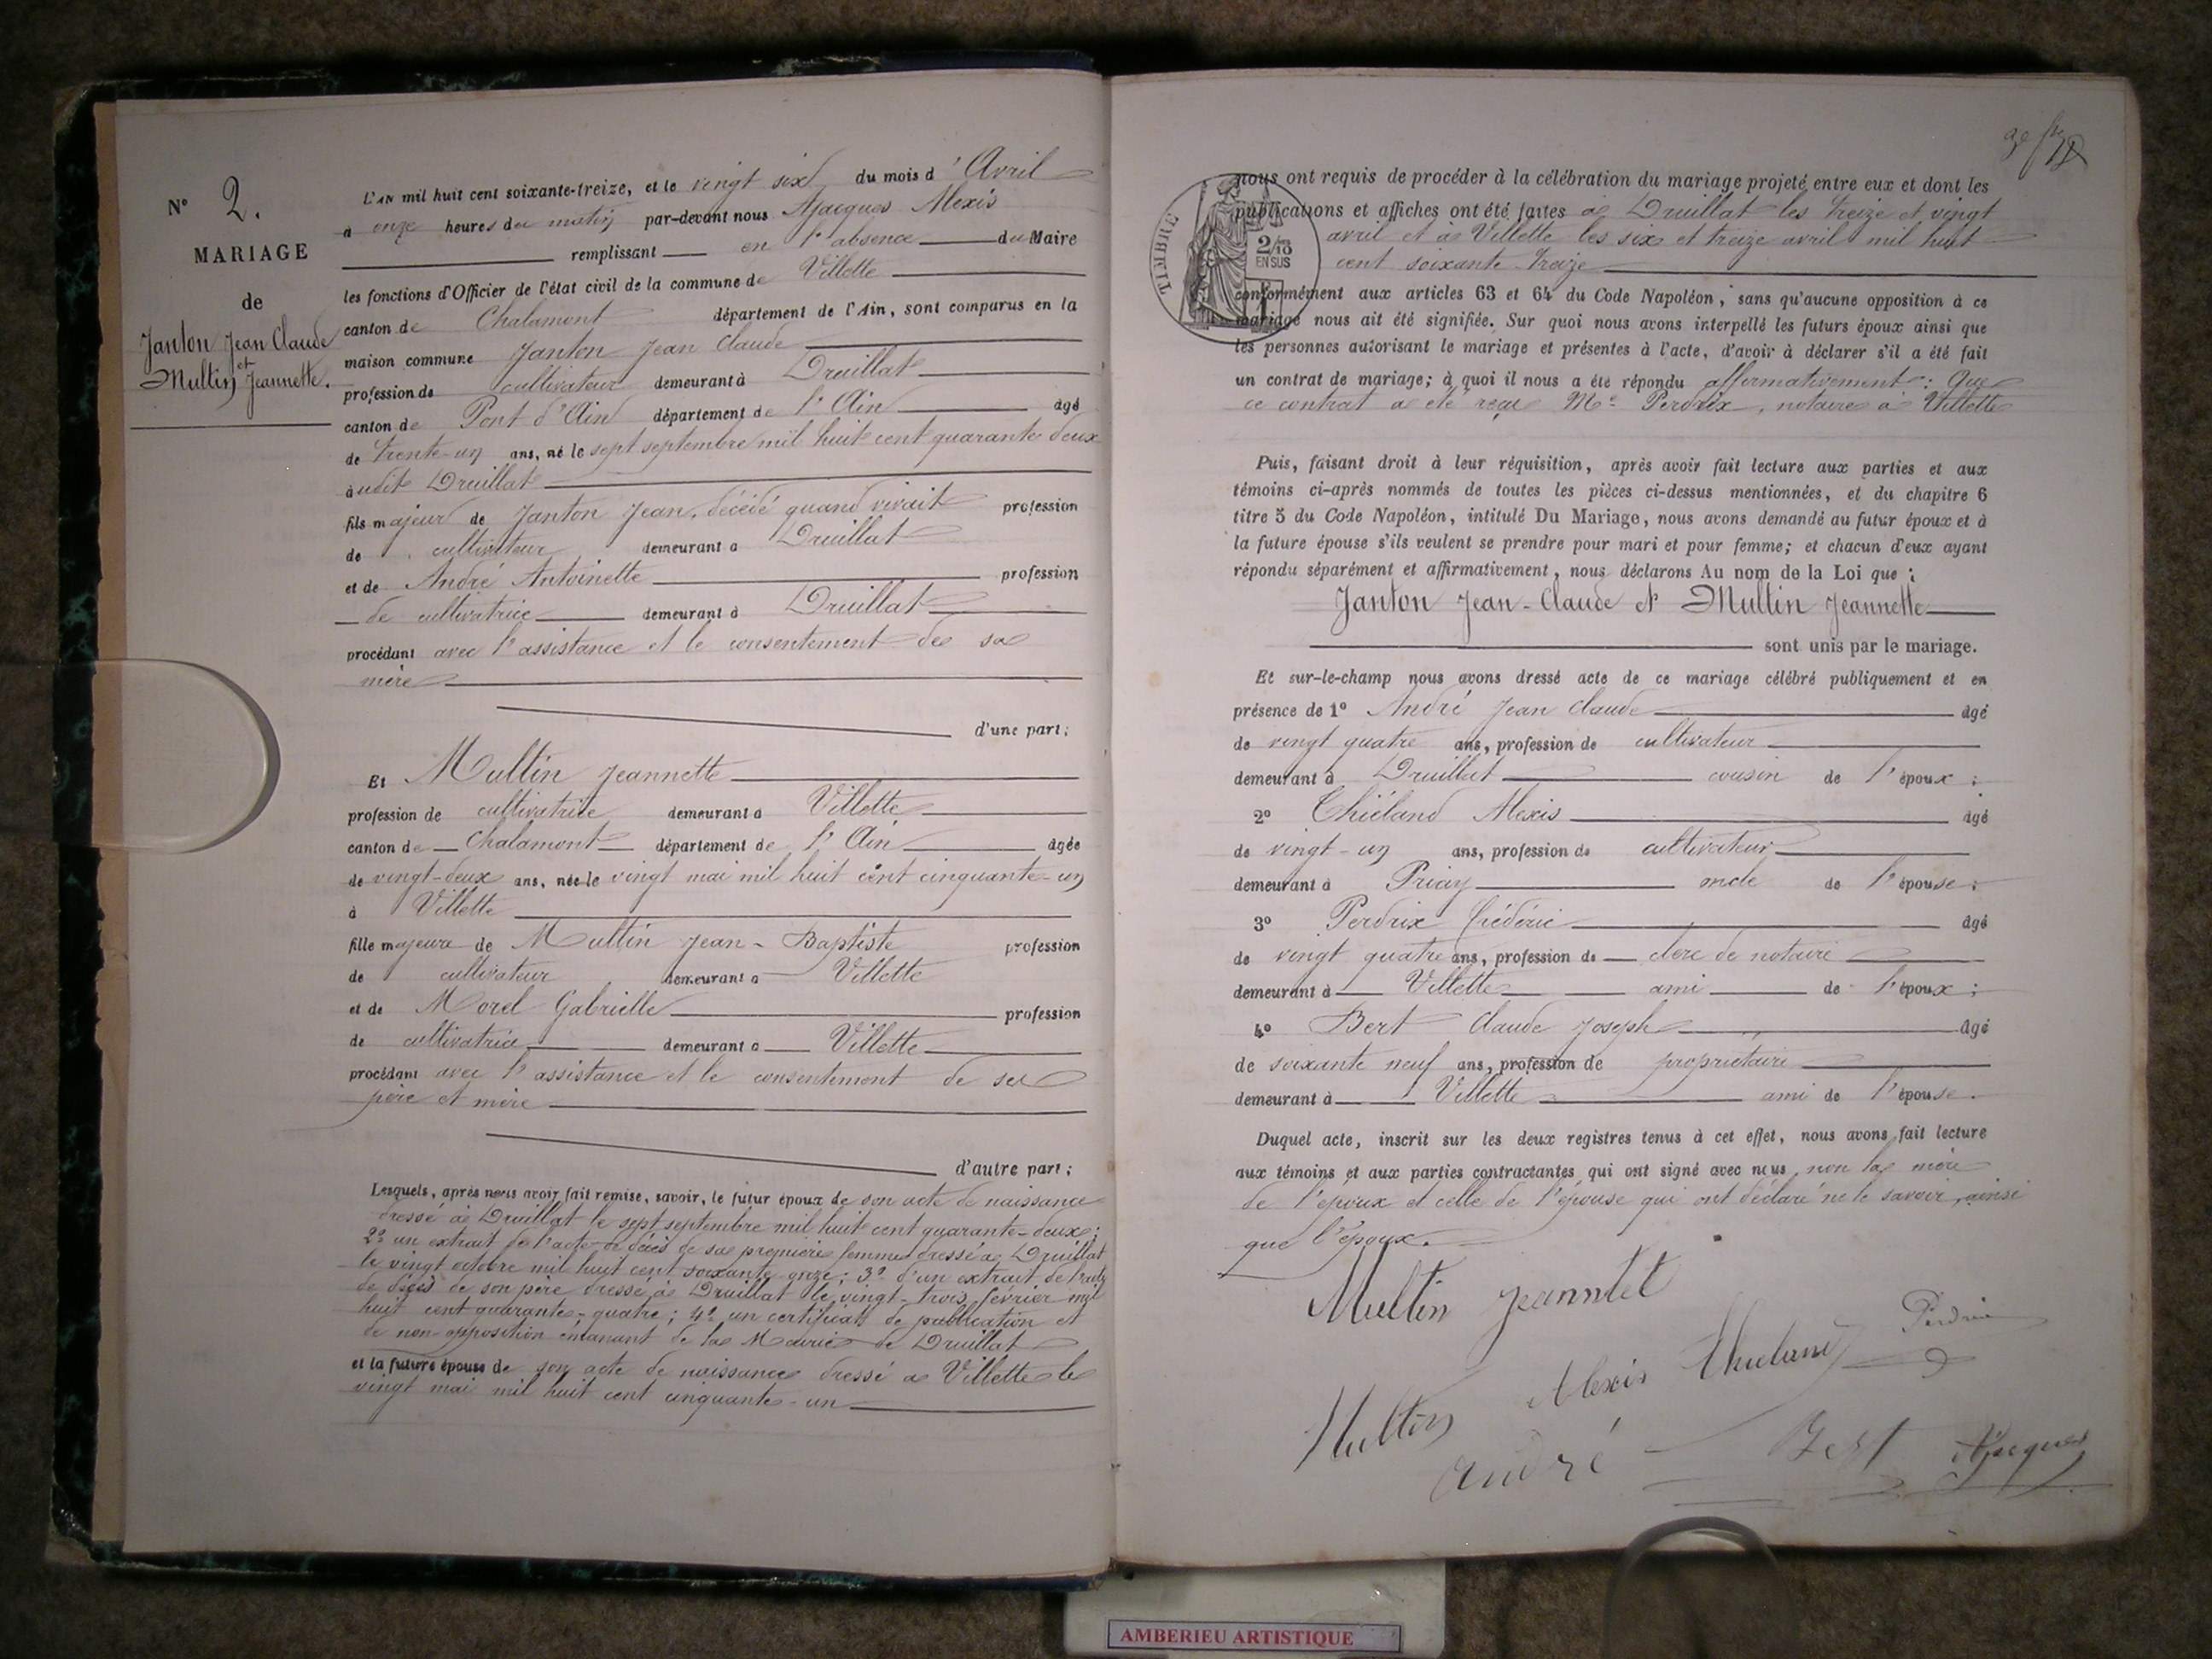 N° 2.
MARIAGE
de
Janton Jean Claude
et
Multin Jeannette.
L'AN mil huit cent soixante-treize, et le vingt six du mois d'Avril
à onze heures du matin par-devant nous Ajacques Alexis
remplissant en l'absence du Maire
les fonctions d'Officier de l'état civil de la commune de Villette
canton de Chalamont département de l'Ain, sont comparus en la
maison commune Janton Jean Claude
profession de cultivateur demeurant à Druillat
canton de Pont d'Ain département de l'Ain âgé
de trente-un ans, né le sept septembre mil huit cent quarante deux
audit Druillat
fils majeur de Janton Jean, décédé quand vivait profession
de cultivateur demeurant a Druillat
et de André Antoinette profession
de cultivatrice demeurant à Druillat
procédant avec l'assistance et le consentement de sa
mère
d'une part;
Et Multin Jeannette
profession de cultivatrice demeurant a Villette
canton de Chalamont département de l'Ain âgée
de vingt-deux ans, née le vingt mai mil huit cent cinquante-un
à Villette
fille majeure de Multin Jean-Baptiste profession
de cultivateur demeurant a Villette
et de Morel Gabrielle profession
de cultivatrice demeurant a Villette
procédant avec l'assistance et le consentement de ses
père et mère
d'autre part;
Lesquels, après nous avoir fait remise, savoir, le futur époux de son acte de naissance
dressé à Druillat le sept septembre mil huit cent quarante-deux;
2° un extrait de l'acte de décès de sa première femme dressé à Druillat
le vingt octobre mil huit cent soixante onze; 3° d'un extrait de l'acte
de décès de son père dressé à Druillat le vingt-trois février mil
huit cent quarante-quatre; 4° un certificat de publication et
de non opposition émanant de la Mairie de Druillat
et la future épouse de son acte de naissance dressé à Villette le
vingt mai mil huit cent cinquante-un
TIMBRE
2/10
EN SUS
nous ont requis de procéder à la célébration du mariage projeté entre eux et dont les
publications et affiches ont été faites à Druillat les treize et vingt
avril et à Villette les six et treize avril mil huit
cent soixante-treize
conformément aux articles 63 et 64 du Code Napoléon, sans qu'aucune opposition à ce
mariage nous ait été signifiée. Sur quoi nous avons interpellé les futurs époux ainsi que
les personnes autorisant le mariage et présentes à l'acte, d'avoir à déclarer s'il a été fait
un contrat de mariage; à quoi il nous a été répondu affirmativement: Que
ce contrat a été reçu Me Perdrix, notaire à Villette
Puis, faisant droit à leur réquisition, après avoir fait lecture aux parties et aux
témoins ci-après nommés de toutes les pièces ci-dessus mentionnées, et du chapitre 6
titre 5 du Code Napoléon, intitulé Du Mariage, nous avons demandé au futur époux et à
la future épouse s'ils veulent se prendre pour mari et pour femme; et chacun d'eux ayant
répondu séparément et affirmativement, nous déclarons Au nom de la Loi que:
Janton Jean-Claude et Multin Jeannette
sont unis par le mariage.
Et sur-le-champ nous avons dressé acte de ce mariage célébré publiquement et en
présence de 1° André Jean Claude âgé
de vingt quatre ans, profession de cultivateur
demeurant à Druillat cousin de l'époux;
2° Thiéland Alexis âgé
de vingt-un ans, profession de cultivateur
demeurant à Priay oncle de l'épouse;
3° Perdrix Frédéric âgé
de vingt quatre ans, profession de clerc de notaire
demeurant à Villette ami de l'époux;
4° Bert Claude Joseph âgé
de soixante neuf ans, profession de propriétaire
demeurant à Villette ami de l'épouse.
Duquel acte, inscrit sur les deux registres tenus à cet effet, nous avons fait lecture
aux témoins et aux parties contractantes qui ont signé avec nous, non la mère
de l'époux et celle de l'épouse qui ont déclaré ne le savoir, ainsi
que l'époux.
Multin jeanntet
Perdrix
Alexis Thieland
Multin
andré
Bert
Ajacques
AMBERIEU ARTISTIQUE